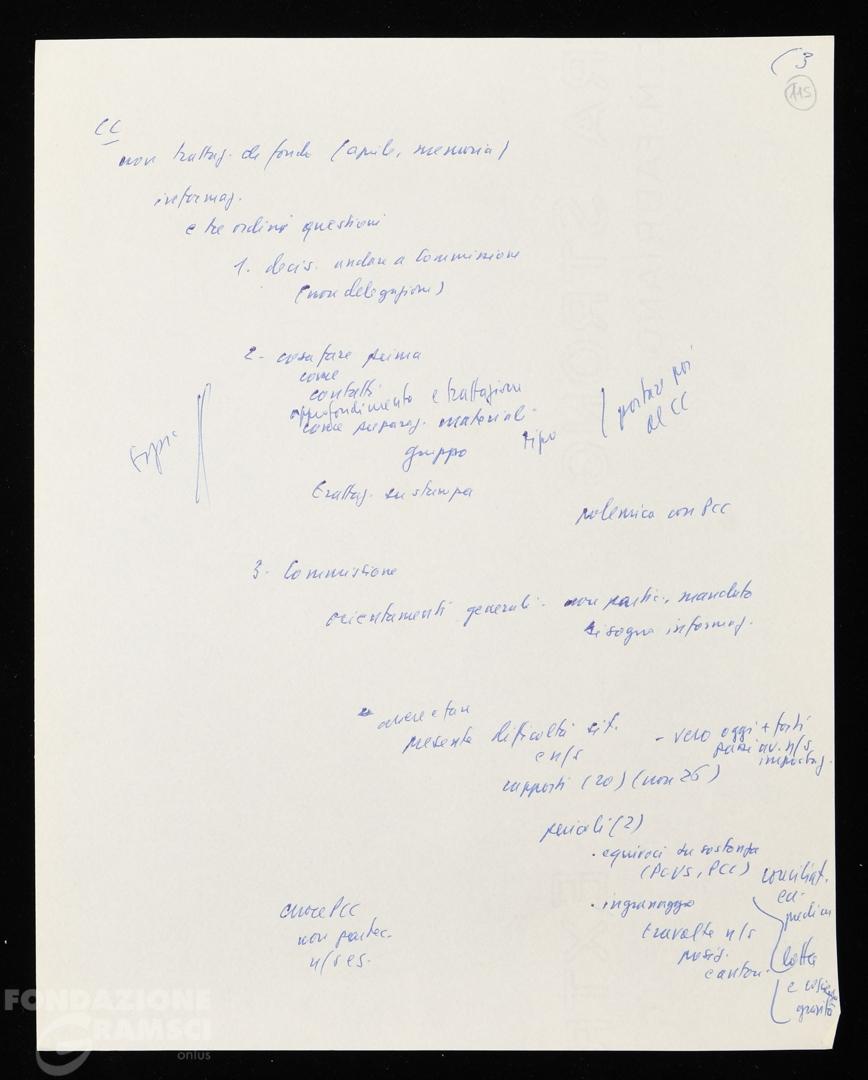 (3
115
CC
non trattaz. di fondo (aprile, memoria)
informaz.
e tre ordini questioni
1. decis. andare a Commissione
(non delegazione)
2- cosa fare prima
come
contatti
approfondimento e trattazione
come preparaz. material-
gruppo tipo
portare poi
al CC
trattaz. su stampa
polemica con PCC
3- Commissione
orientamenti generali - non partic., mandato
bisogno informaz.
presenta difficoltà sit.
e n/s
- vero oggi + forti
n/s
rapporti (20) (non 26)
pericoli (2)
. equivoci su sostanza
(PCUS, PCC)
. ingranaggio
travolte n/s
posiz.
conciliat.
ed
lotta
e
gravità
anche PCC
non partec.
n/s es.
FONDAZIONE
GRAMSCI
onlus